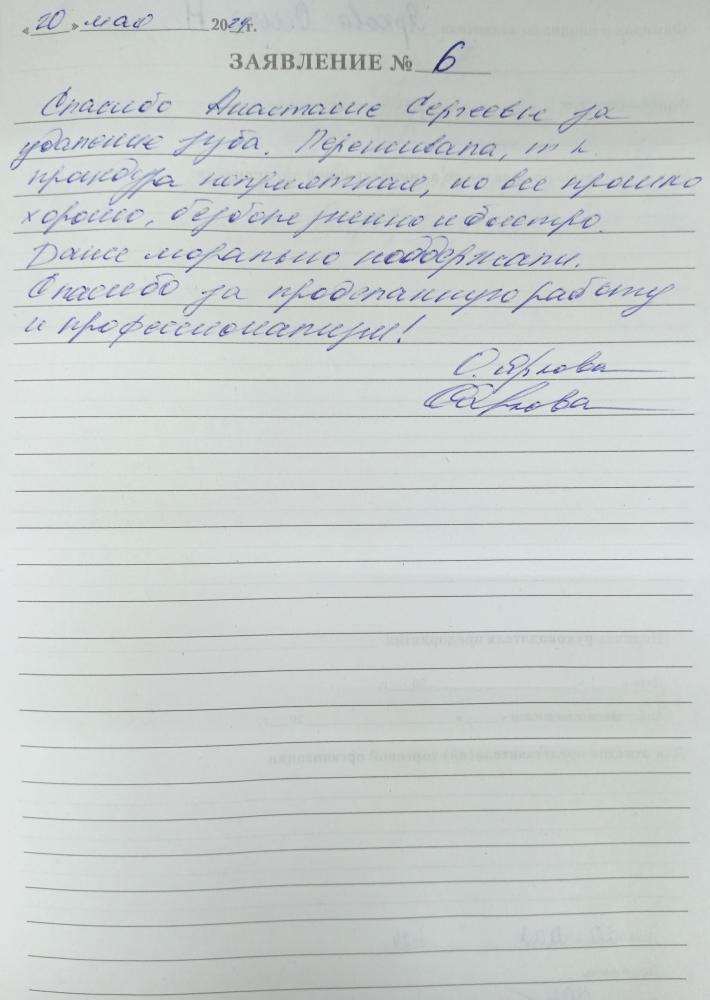 «20» мая 2024г.
ЗАЯВЛЕНИЕ № 6
Спасибо Анастасие Сергеевне за
удаление зуба. Переживала, т.к.
процедура неприятная, но все прошло
хорошо, безболезненно и быстро.
Даже морально поддержали.
Спасибо за проделанную работу
и профессионализм!
О. Яркова
ОЯркова